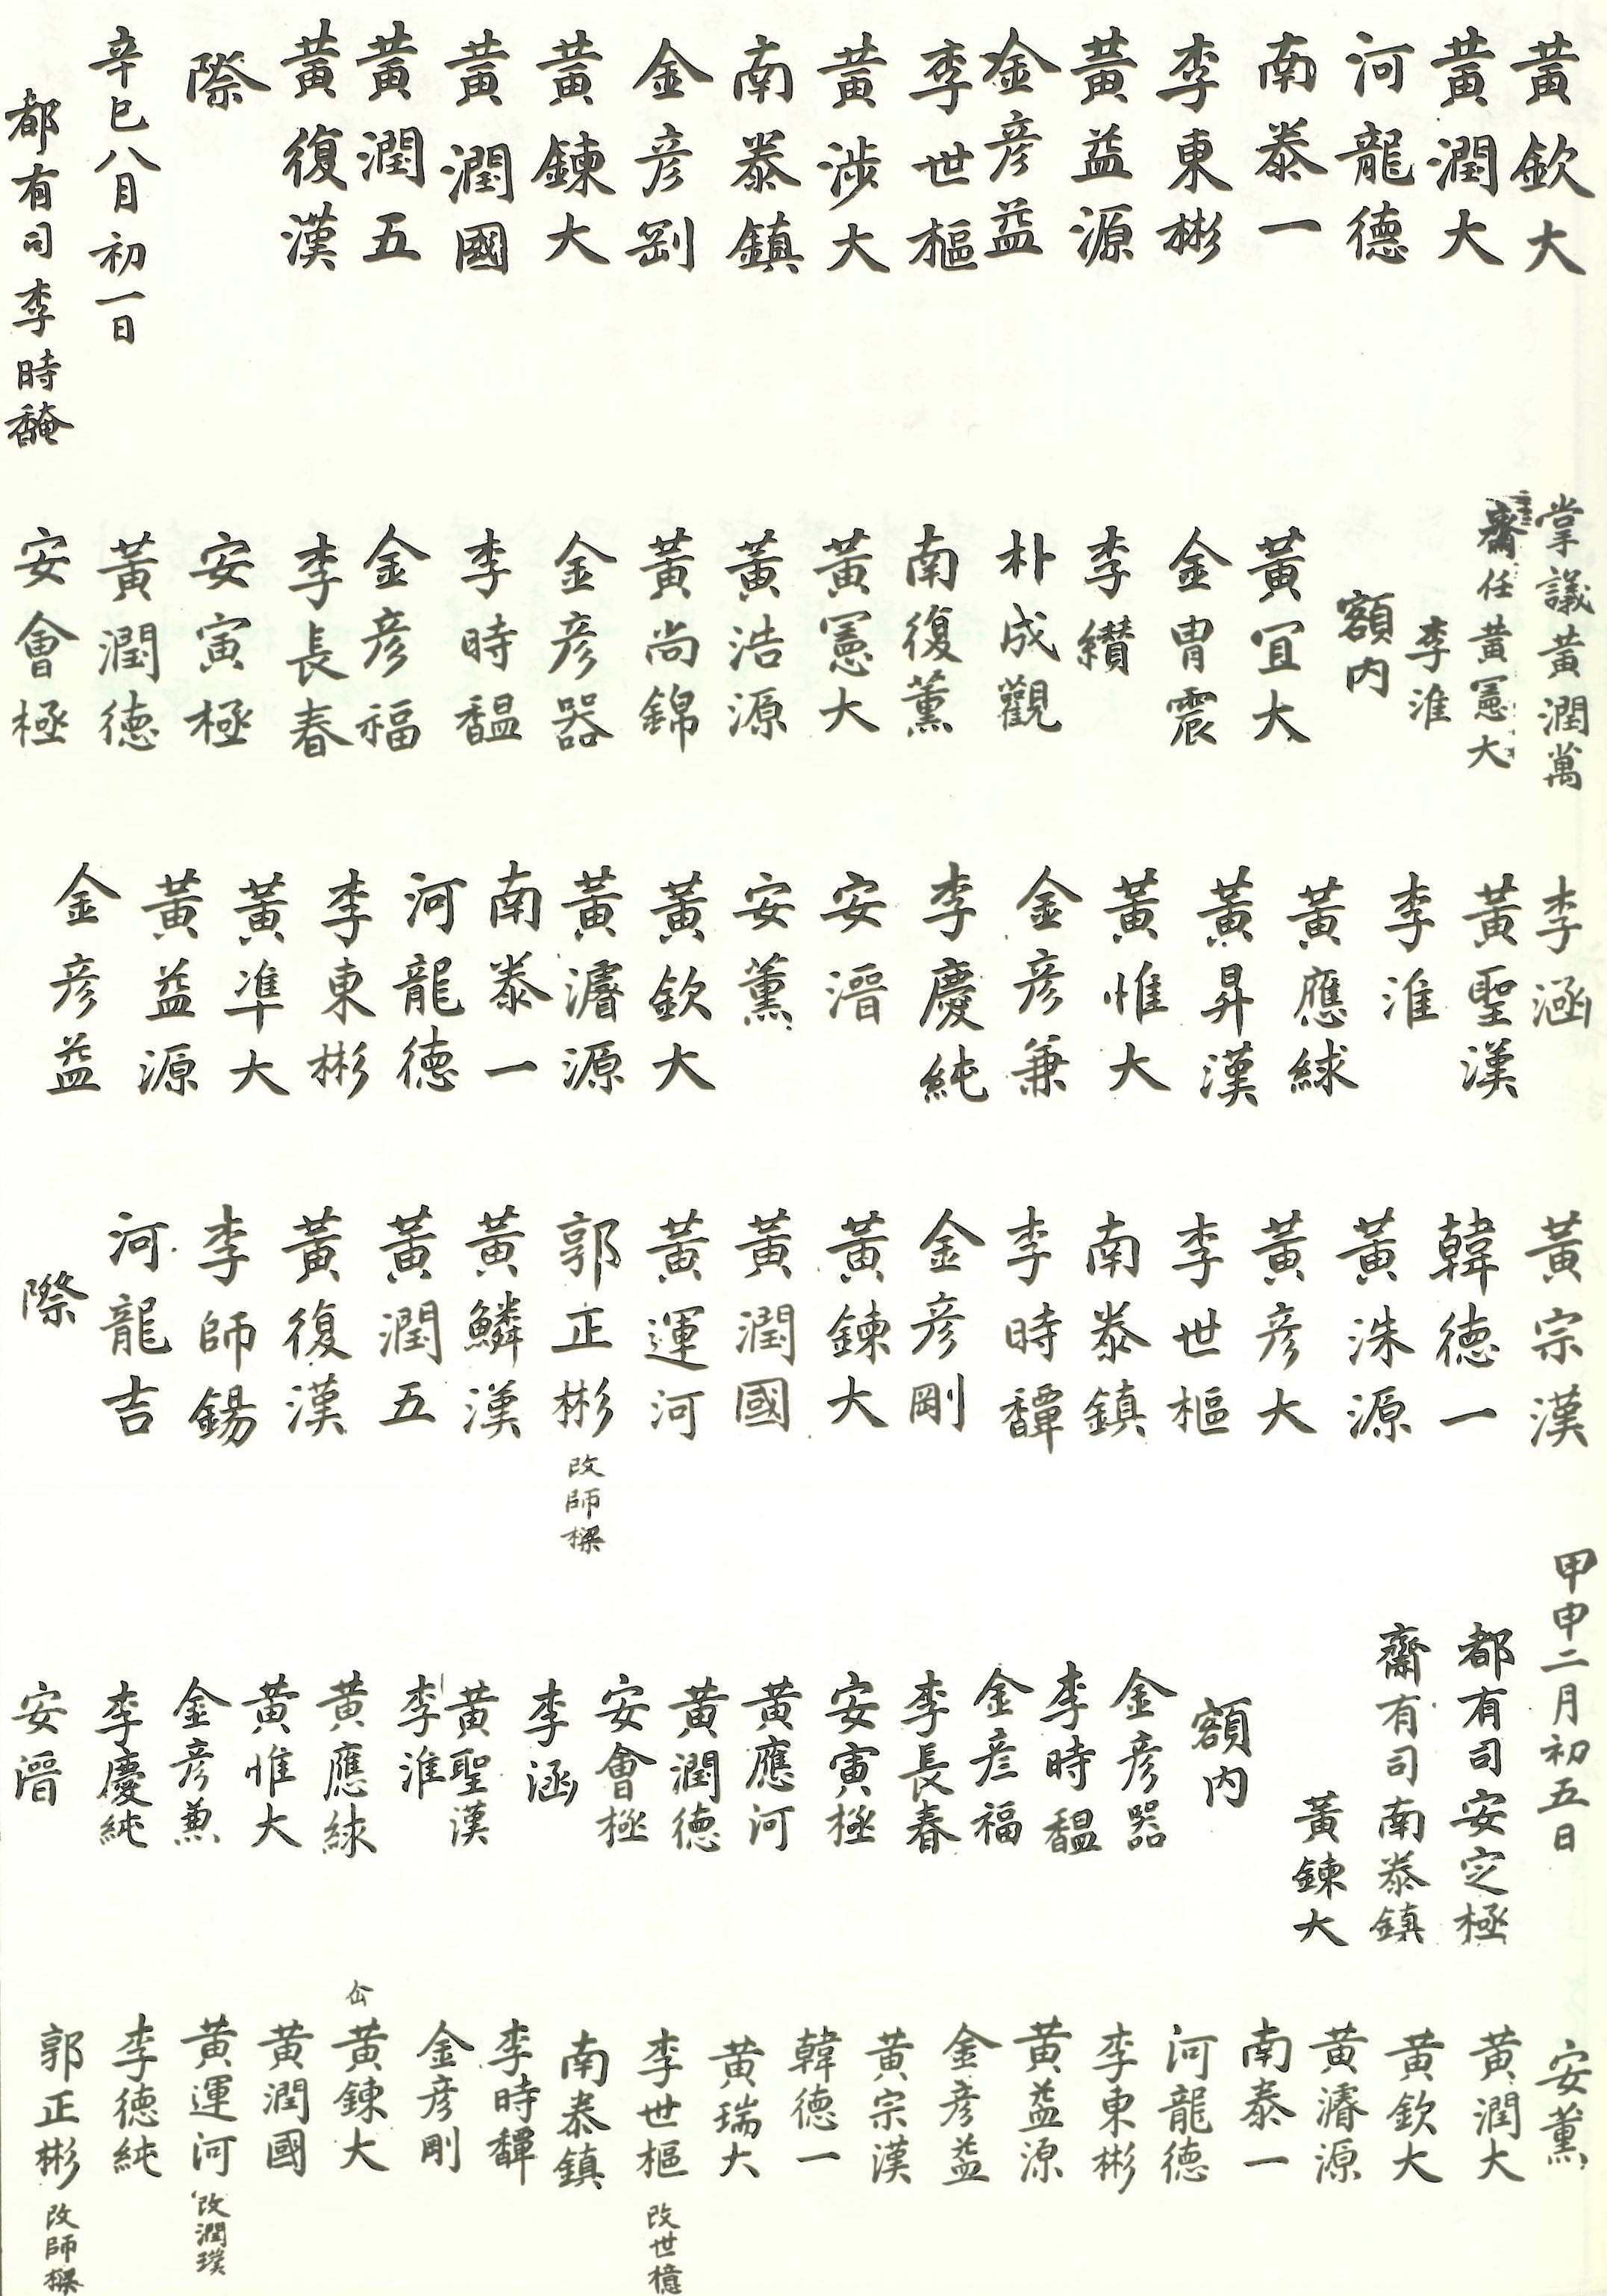 黃欽大
黃潤大
河龍德
南泰一
李東彬
黃益源
金彦益
李世樞
黃涉大
南泰鎮
金彦剛
黃鍊大
黃潤國
黃潤五
黃復漢
際
辛巳八月初一日
都有司李時馣
掌議黃潤萬
齋任黃憲大
李淮
額內
黃宜大
金胄震
李纘
朴成觀
南復薰
黃憲大
黃浩源
黃尚錦
金彦器
李時馧
金彦福
李長春
安寅極
黃潤德
安會極
李涵
黃聖漢
李淮
黃應絿
黃昇漢
黃惟大
金彦兼
李慶純
安溍
安薰
黃欽大
黃濬源
南泰一
河龍德
李東彬
黃準大
黃益源
金彦益
黃宗漢
韓德一
黃洙源
黃彦大
李世樞
南泰鎮
李時馟
金彦剛
黃鍊大
黃潤國
黃運河
郭正彬 改師樑
黃鱗漢
黃潤五
黃復漢
李師錫
河龍吉
際
甲申二月初五日
都有司安定極
齋有司南泰鎮
黃鍊大
額內
金彦器
李時馧
金彦福
李長春
安寅極
黃應河
黃潤德
安會極
李涵
黃聖漢
李淮
黃應絿
黃惟大
金彦兼
李慶純
安溍
安薰
黃潤大
黃欽大
黃濬源
南泰一
河龍德
李東彬
黃益源
金彦益
黃宗漢
韓德一
黃瑞大
李世樞 改世檍
南泰鎮
李時
金彦剛
黃鍊大
黃潤國
黃運河 改潤璞
李德純
郭正彬 改師樑